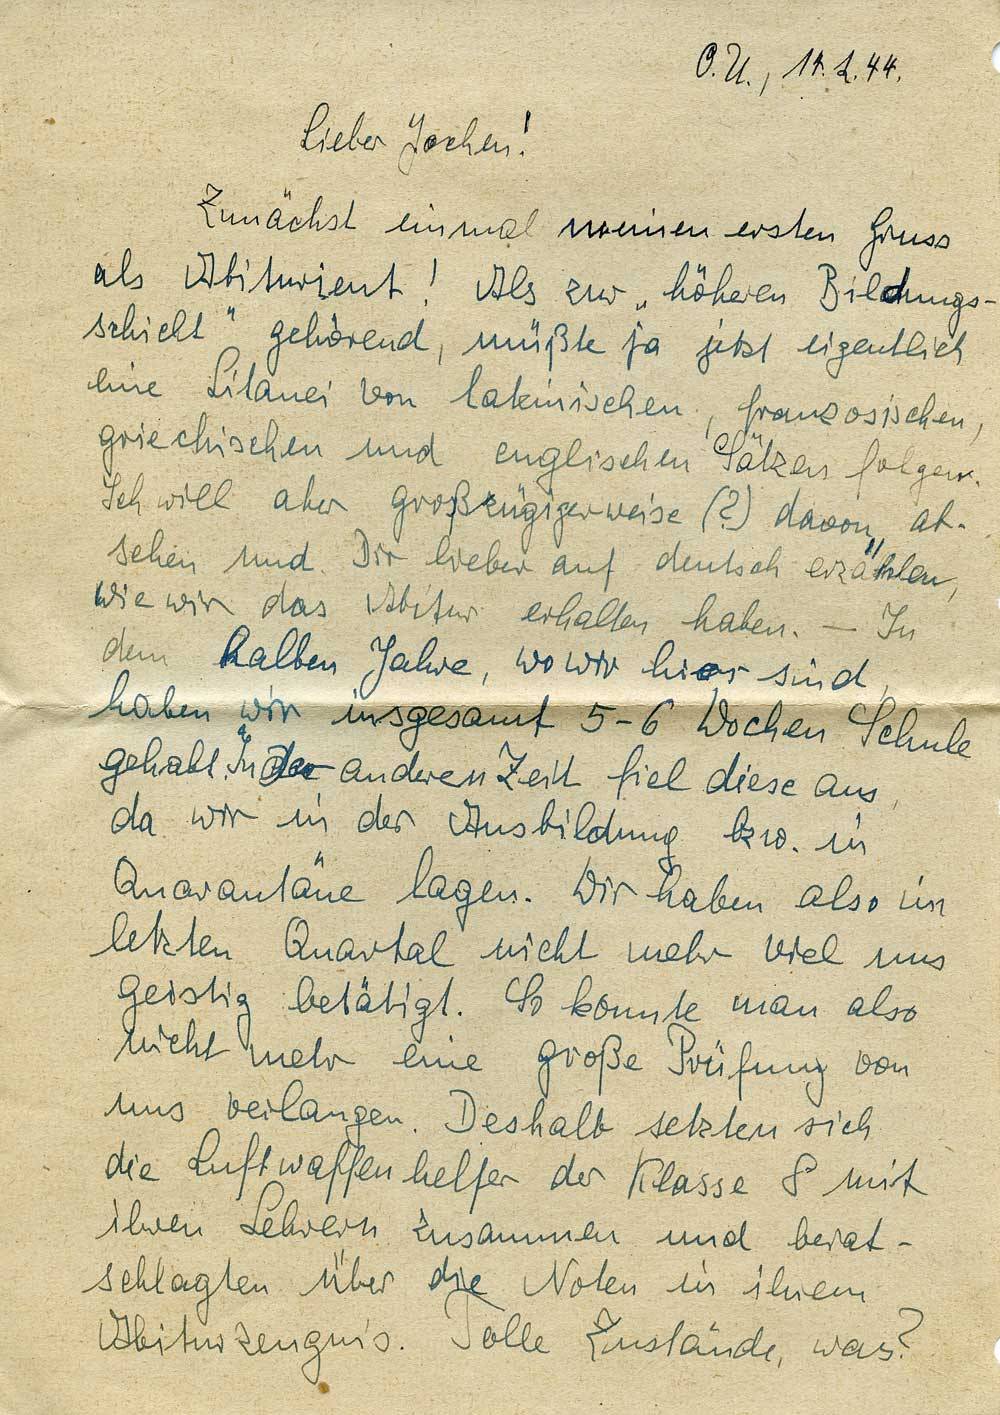 O.U., 14.2.44.
Lieber Jochen!
Zunächst einmal meinen ersten Gruss
als Abiturient! Als zur „höheren Bildungs-
schicht" gehörend, müßte ja jetzt eigentlich
eine Litanei von lateinischen, französischen,
griechischen und englischen Sätzen folgen.
Ich will aber großzügigerweise (?) davon ab-
sehen und Dir lieber auf deutsch erzählen,
wie wir das Abitur erhalten haben. – In
dem halben Jahre, wo wir hier sind,
haben wir insgesamt 5-6 Wochen Schule
gehabt. In der anderen Zeit fiel diese aus,
da wir in der Ausbildung bzw. in
Quarantäne lagen. Wir haben also im
letzten Quartal nicht mehr viel uns
geistig betätigt. So konnte man also
nicht mehr eine große Prüfung von
uns verlangen. Deshalb setzten sich
die Luftwaffenhelfer der Klasse 8 mit
ihren Lehrern zusammen und berat-
schlagten über die Noten in ihrem
Abiturzeugnis. Tolle Zustände, was?